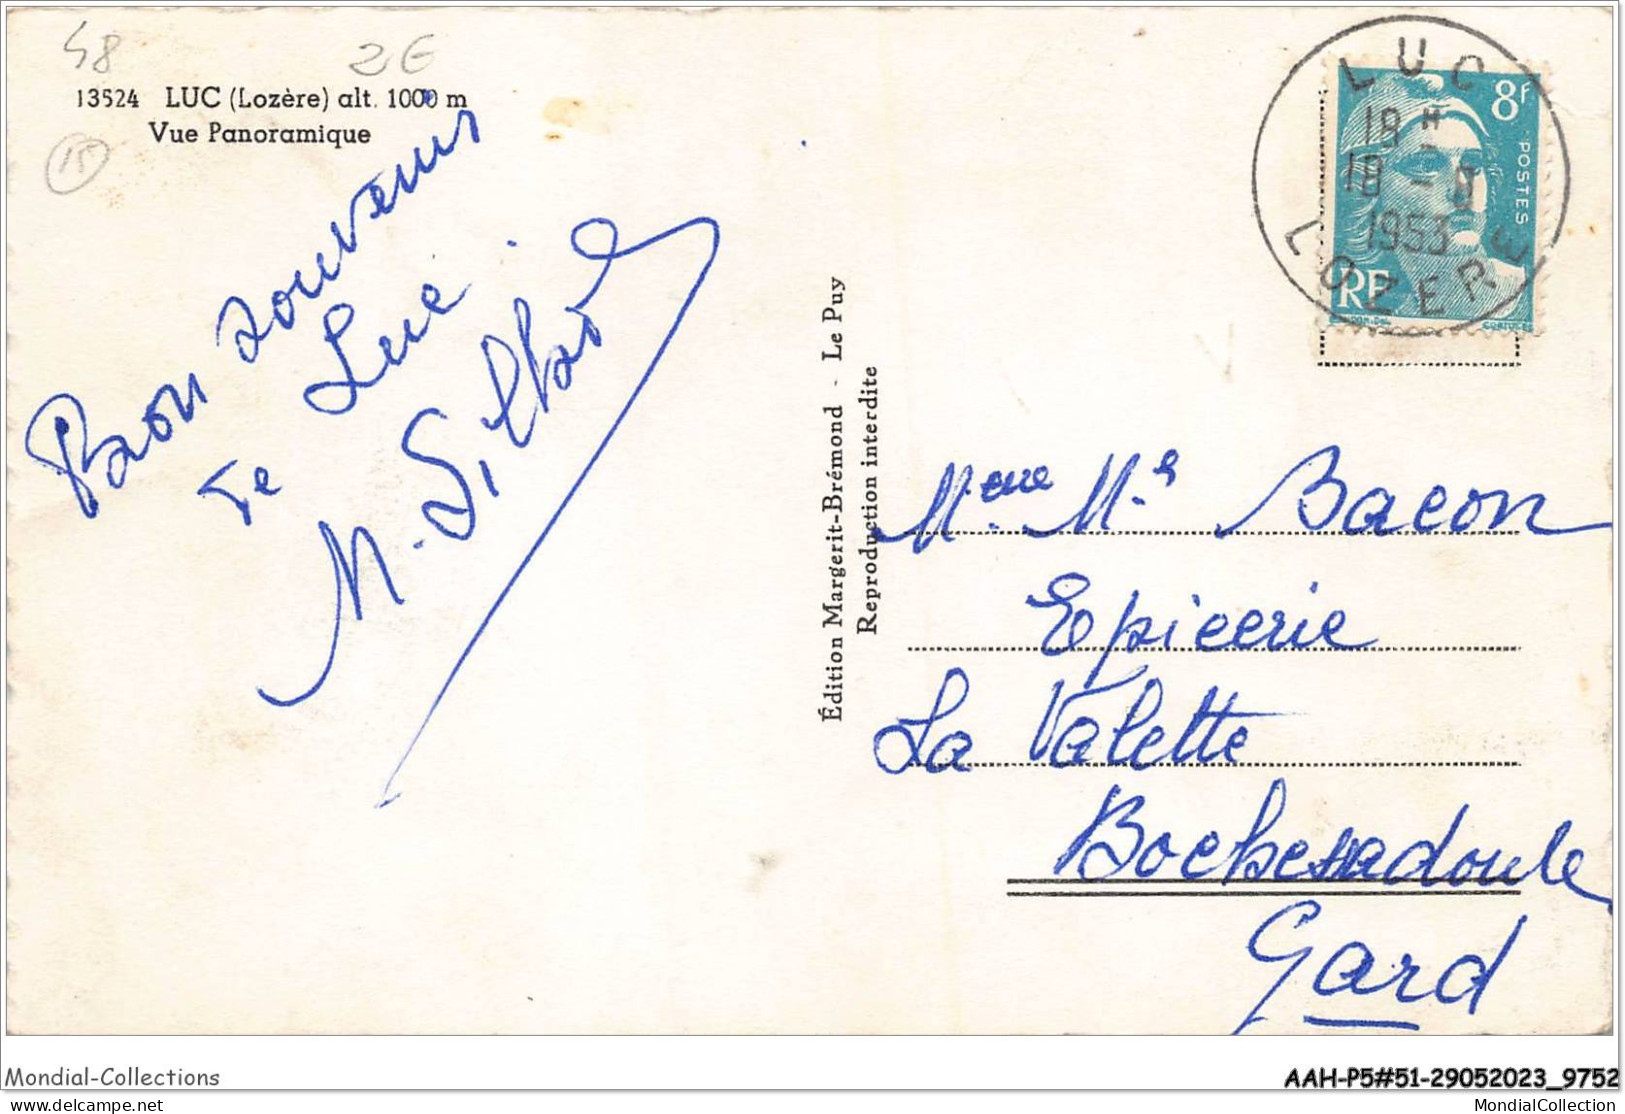 48
2€
13524 LUC (Lozère) alt. 1000 m
Vue Panoramique
15
Bon souvenir
de Luc
M.
Édition Margerit-Brémond - Le Puy
Reproduction interdite
LUC
18 H
18 -
1953
LOZÈRE
8F
POSTES
RF
GANDON DEL.
CORTOT SC.
Mme Mr Bacon
Epicerie
La Valette
Gard
Mondial-Collections
AAH-P5#51-29052023_9752
www.delcampe.net
MondialCollection